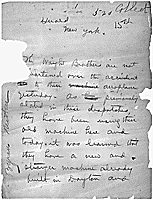 Herald
New York. 15th
The Wright Brothers are not
over the accident
to their aeroplane
yesterday. As previously
stated in these dispatches
they have been using their
old machine here and
today it was learned that
they have a new and
stronger machine already
built in Dayton and